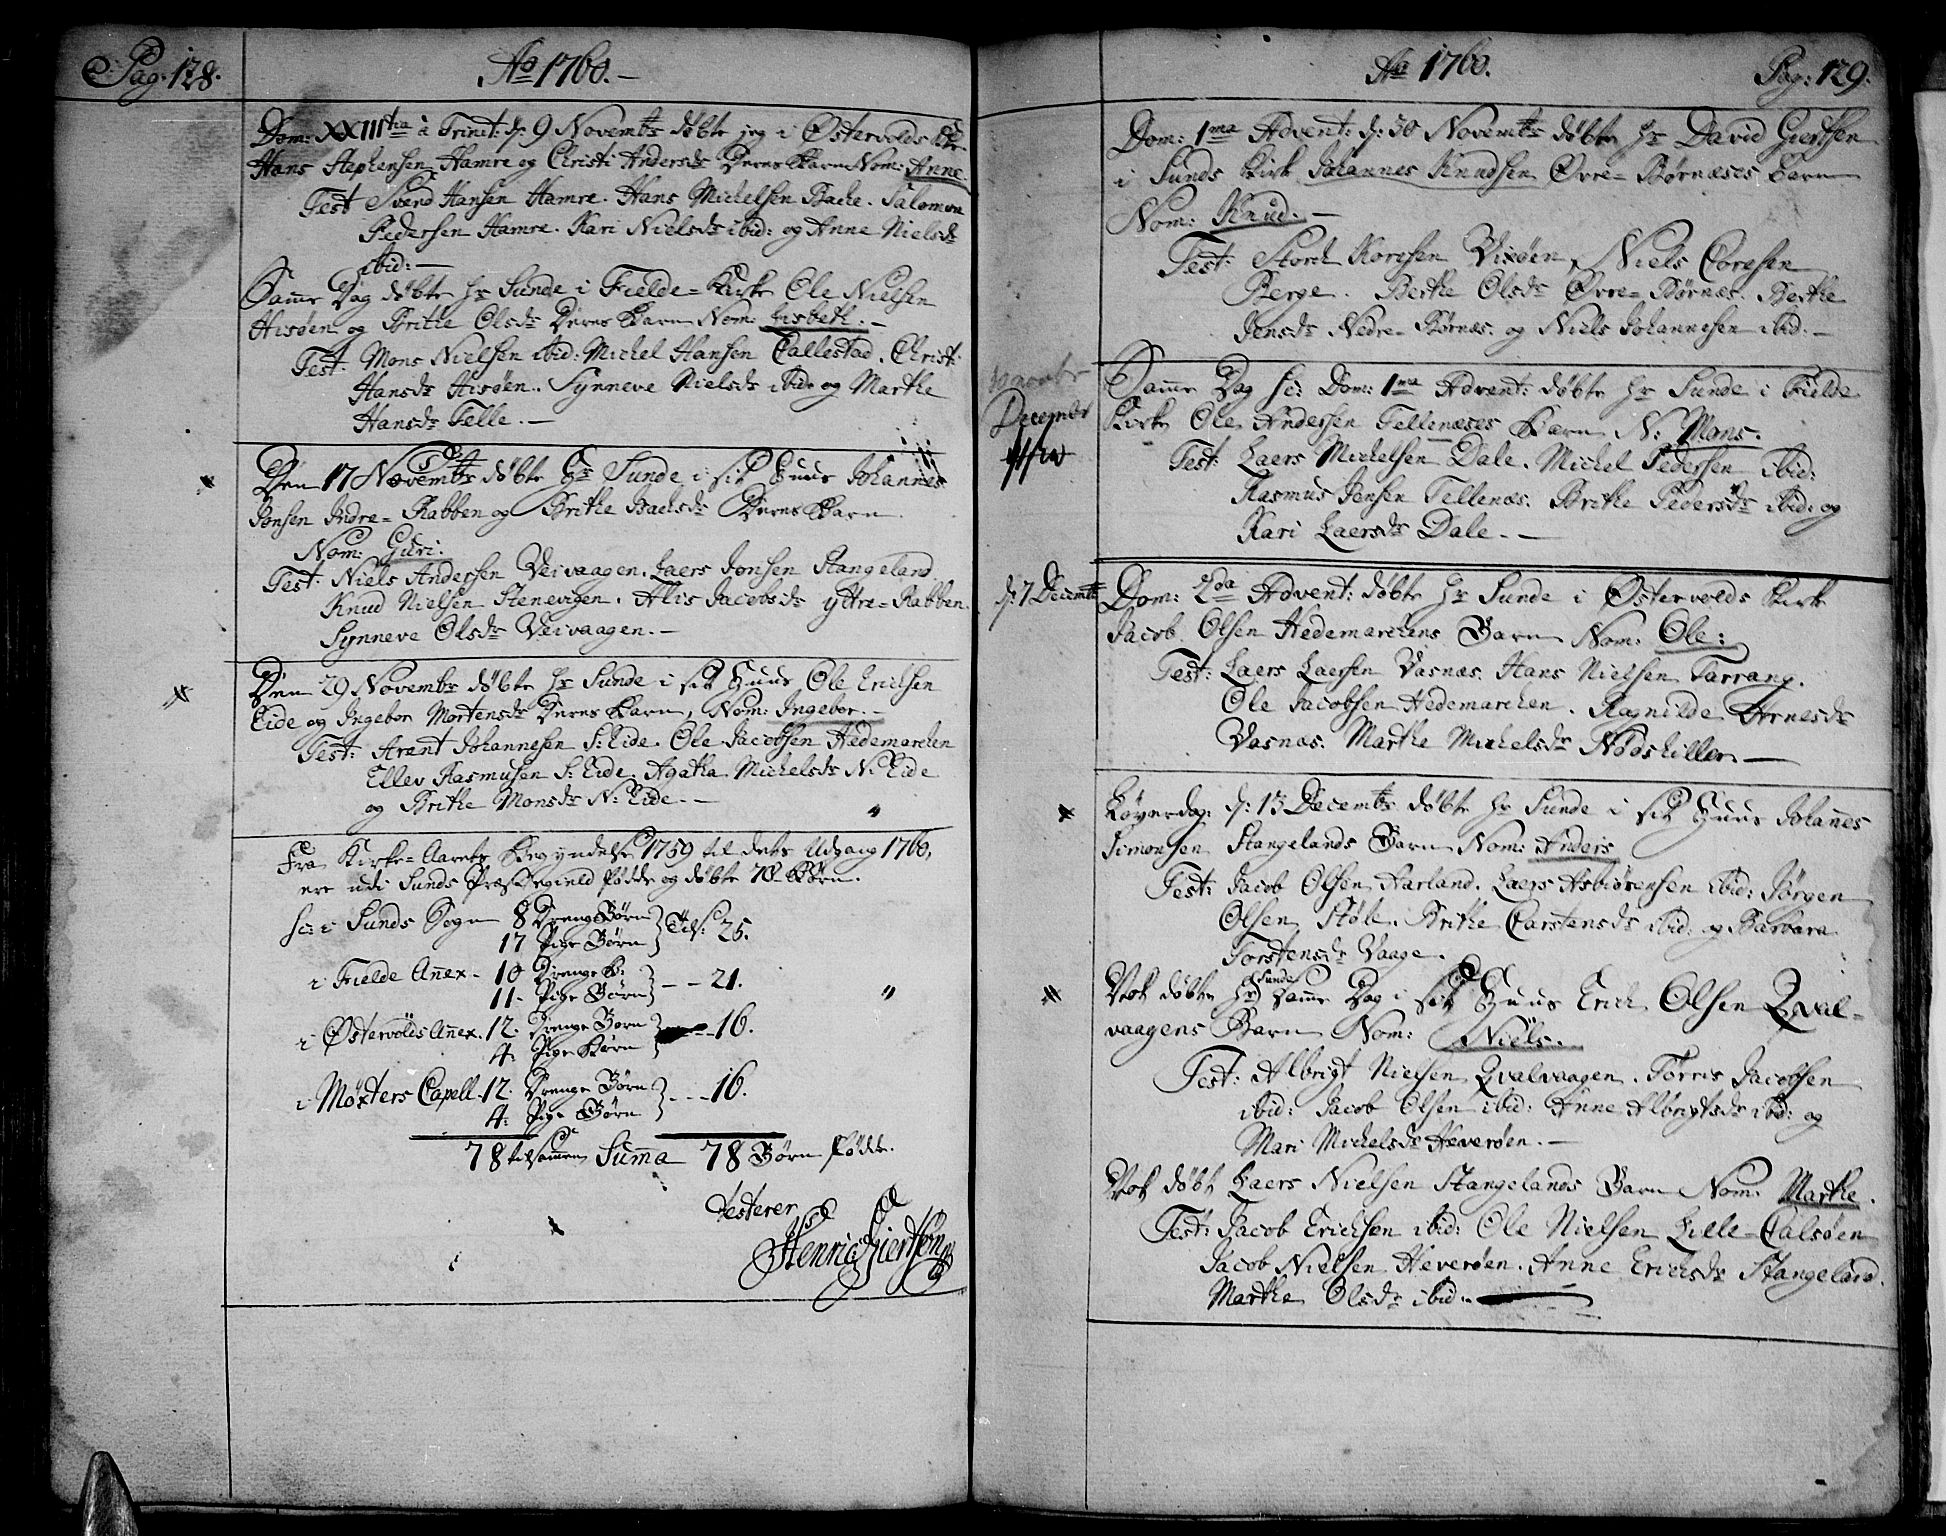 Pag: 128.
Ao 1760. —
Dom: XXIIItia à Trinit: d: 9 Novembr døbte jeg i Østervolds Kirke
Hans Stephensen Hamre og Christi Andersdr Deres Barn Nom: Anne.
Test Sverd Hansen Hamre. Hans Michelsen Backe. Salomon
Pedersen Hamre. Kari Nielsdr ibid: og Anne Nielsdr
ibid: —
Samme Dag døbte Hr Sunde i Fielde-Kirke Ole Nielsen
Hisøen og Brithe Olsdr Deres Barn Nom: Lisbeth. —
Test: Mons Nielsen ibid: Michel Hansen Tallestad. Christi
Hansdr Hisøen. Synneve Nielsdr ibid: og Marthe
Hansdr Telle. —
Den 17 Novembr døbte Hr Sunde i sit Huus Johannes
Jonsen Indre-Rabben og Brithe Bachsdr Deres Barn
Nom: Guri.
Test: Niels Andersen Veivaagen. Laers Jonsen Stangeland.
Knud Nielsen Stenevigen. Alis Jacobsdr yttre-Rabben.
Synneve Olsdr Veivaagen. —
Den 29 Novembr døbte Hr Sunde i sit Huus Ole Erichsen
Eide og Ingebor Mortensdr Deres Barn, Nom: Ingebor. —
Test: Arent Johannesen S: Eide. Ole Jacobsen Hedemarchen
Ellev Rasmusen S: Eide. Agatha Michelsdr N: Eide
og Brithe Monsdr N: Eide. —
Fra Kirke-Aarets Begyndelse 1759 til dets Udgang 1760,
ere udi Sunds Præstegield fødde og døbte 78 Børn.
sc: i Sunds Sogn 8 Drenge Børn
17 Pige Børn } Tils: 25.
i Fielde Añex - 10 Drenge B:
11 - Pige Børn } - - 21.
i Østervolds Añex. 12. Drenge Børn
4. Pige Børn } - - 16.
i Møxters Capell. 12. Drenge Børn
4. Pige Børn } - - - 16.
78 tilsammen Suma 78 Børn fødde.
testerer
Henric Giertsen
Ao 1760.
Pag: 129.
Dom: 1ma Advent: d: 30 Novembr døbte Hr David Giertsen
i Sunds Kirk Johannes Knudsen Øvre-Børnæses Barn
Nom: Knud. —
Test: Stord Koresen Vixøen, Niels Coresen
Berge. Berthe Olsdr Øvre-Børnæs. Berthe
Jensdr Nedre-Børnæs. og Niels Johannesen ibid: —
December
Samme Dag sc: Dom: 1ma Advent: døbte Hr Sunde i Fielde
Kirke Ole Andersen Tellenæses Barn N: Mons.
Test: Laers Michelsen Dale. Michel Pedersen ibid:
Rasmus Jensen Tellenæs. Brithe Pedersdr ibid: og
Kari Laersdr Dale. —
d: 7 Decembr
Dom: 2da Advent: døbte Hr Sunde i Østervolds Kirk
Jacob Olsen Hedemarchens Barn Nom: Ole:
Test: Laers Laersen Vasnæs. Hans Nielsen Tarrang.
Ole Jacobsen Hedemarchen. Ragnilde Arnesdr
Vasnæs. Marthe Michelsdr Nødskiller —
Løverdag: d: 13 Decembr døbte Hr Sunde i sit Huus Johañes
Simonsen Stangelands Barn Nom: Anders
Test: Jacob Olsen Aarland. Laers Asbiørensen ibid: Jørgen
Olsen Støle. Brithe Carstensdr ibid: og Barbara
Torstensdr Vaage.
Nok døbte Hr Sunde Samme Dag i sit Huus Erich Olsen Qval-
vaagens Barn Nom: Niels.
Test: Albrigt Nielsen Qvalvaagen. Torris Jacobsen
ibid: Jacob Olsen ibid: Anne Albrigtsdr ibid: og
Mari Michelsdr Heverøen. —
Nok døbt Laers Nielsen Stangelands Barn Nom: Marthe.
Test: Jacob Erichsen ibid: Ole Nielsen Lille-Calsøen
Jacob Nielsen Heverøen. Anne Erichsdr Stangeland.
Marthe Olsdr ibid. —